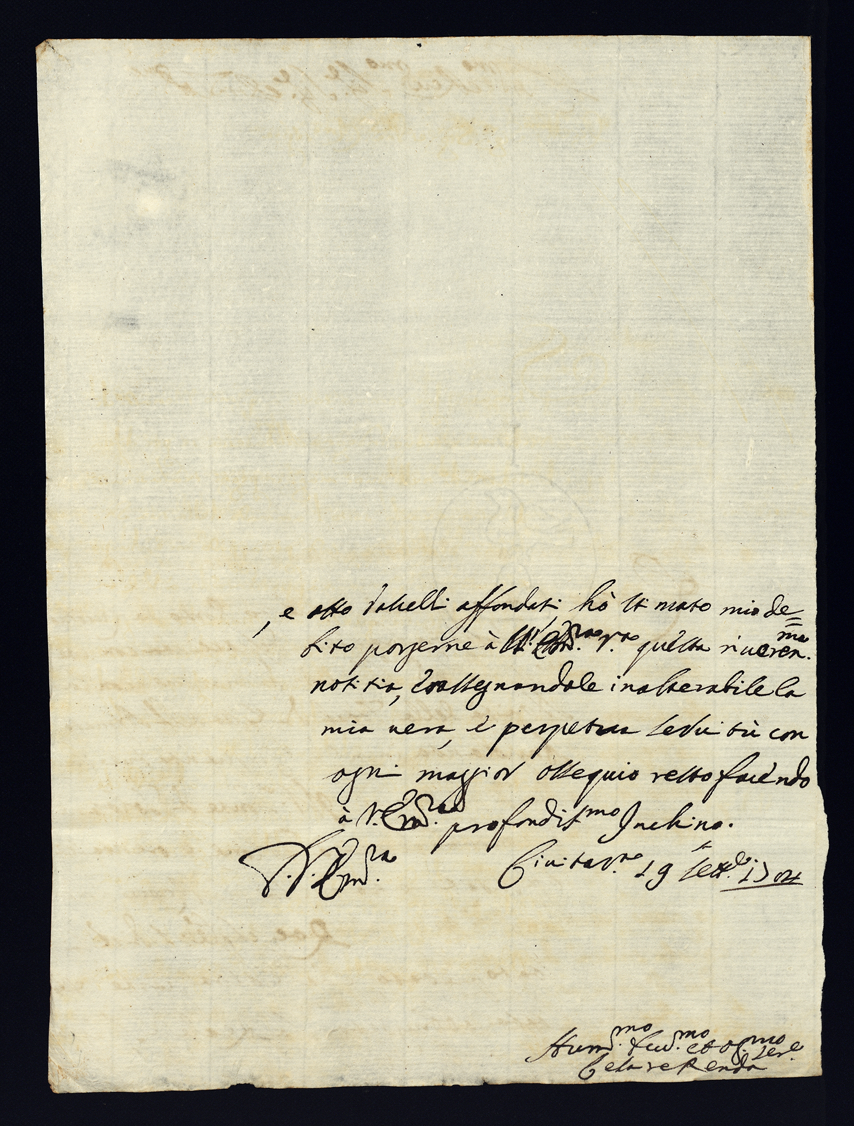 , e otto Vascelli affondati hò stimato mio de=
bito porgerne à V. Em.za questa riueren.ma
notitia, e rassegnandole inalterabile la
mia uera, e perpetua seruitù con
ogni maggior ossequio resto facendo
à V. Em.za profondiss.mo Inchino.
D. V. Em.za Ciuitau.a 19 Sett.e 1704
Hum.mo Deu.mo et obl.mo Ser.e
Cesare Renda